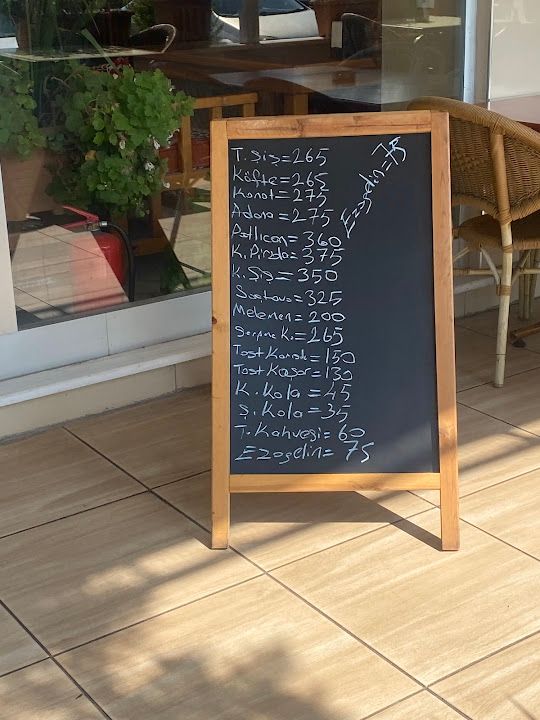 T. Şiş=265
Köfte=265
Kanat=275
Adana=275
Patlıcan=360
K. Pirzola=375
K. Şiş=350
Saç tava=325
Melemen=200
Serpme K.=265
Tost Karışık=150
Tost Kaşar=130
K. Kola=45
Ş. Kola=35
T. Kahvesi=60
Ezogelin=75
Ezogelin=75